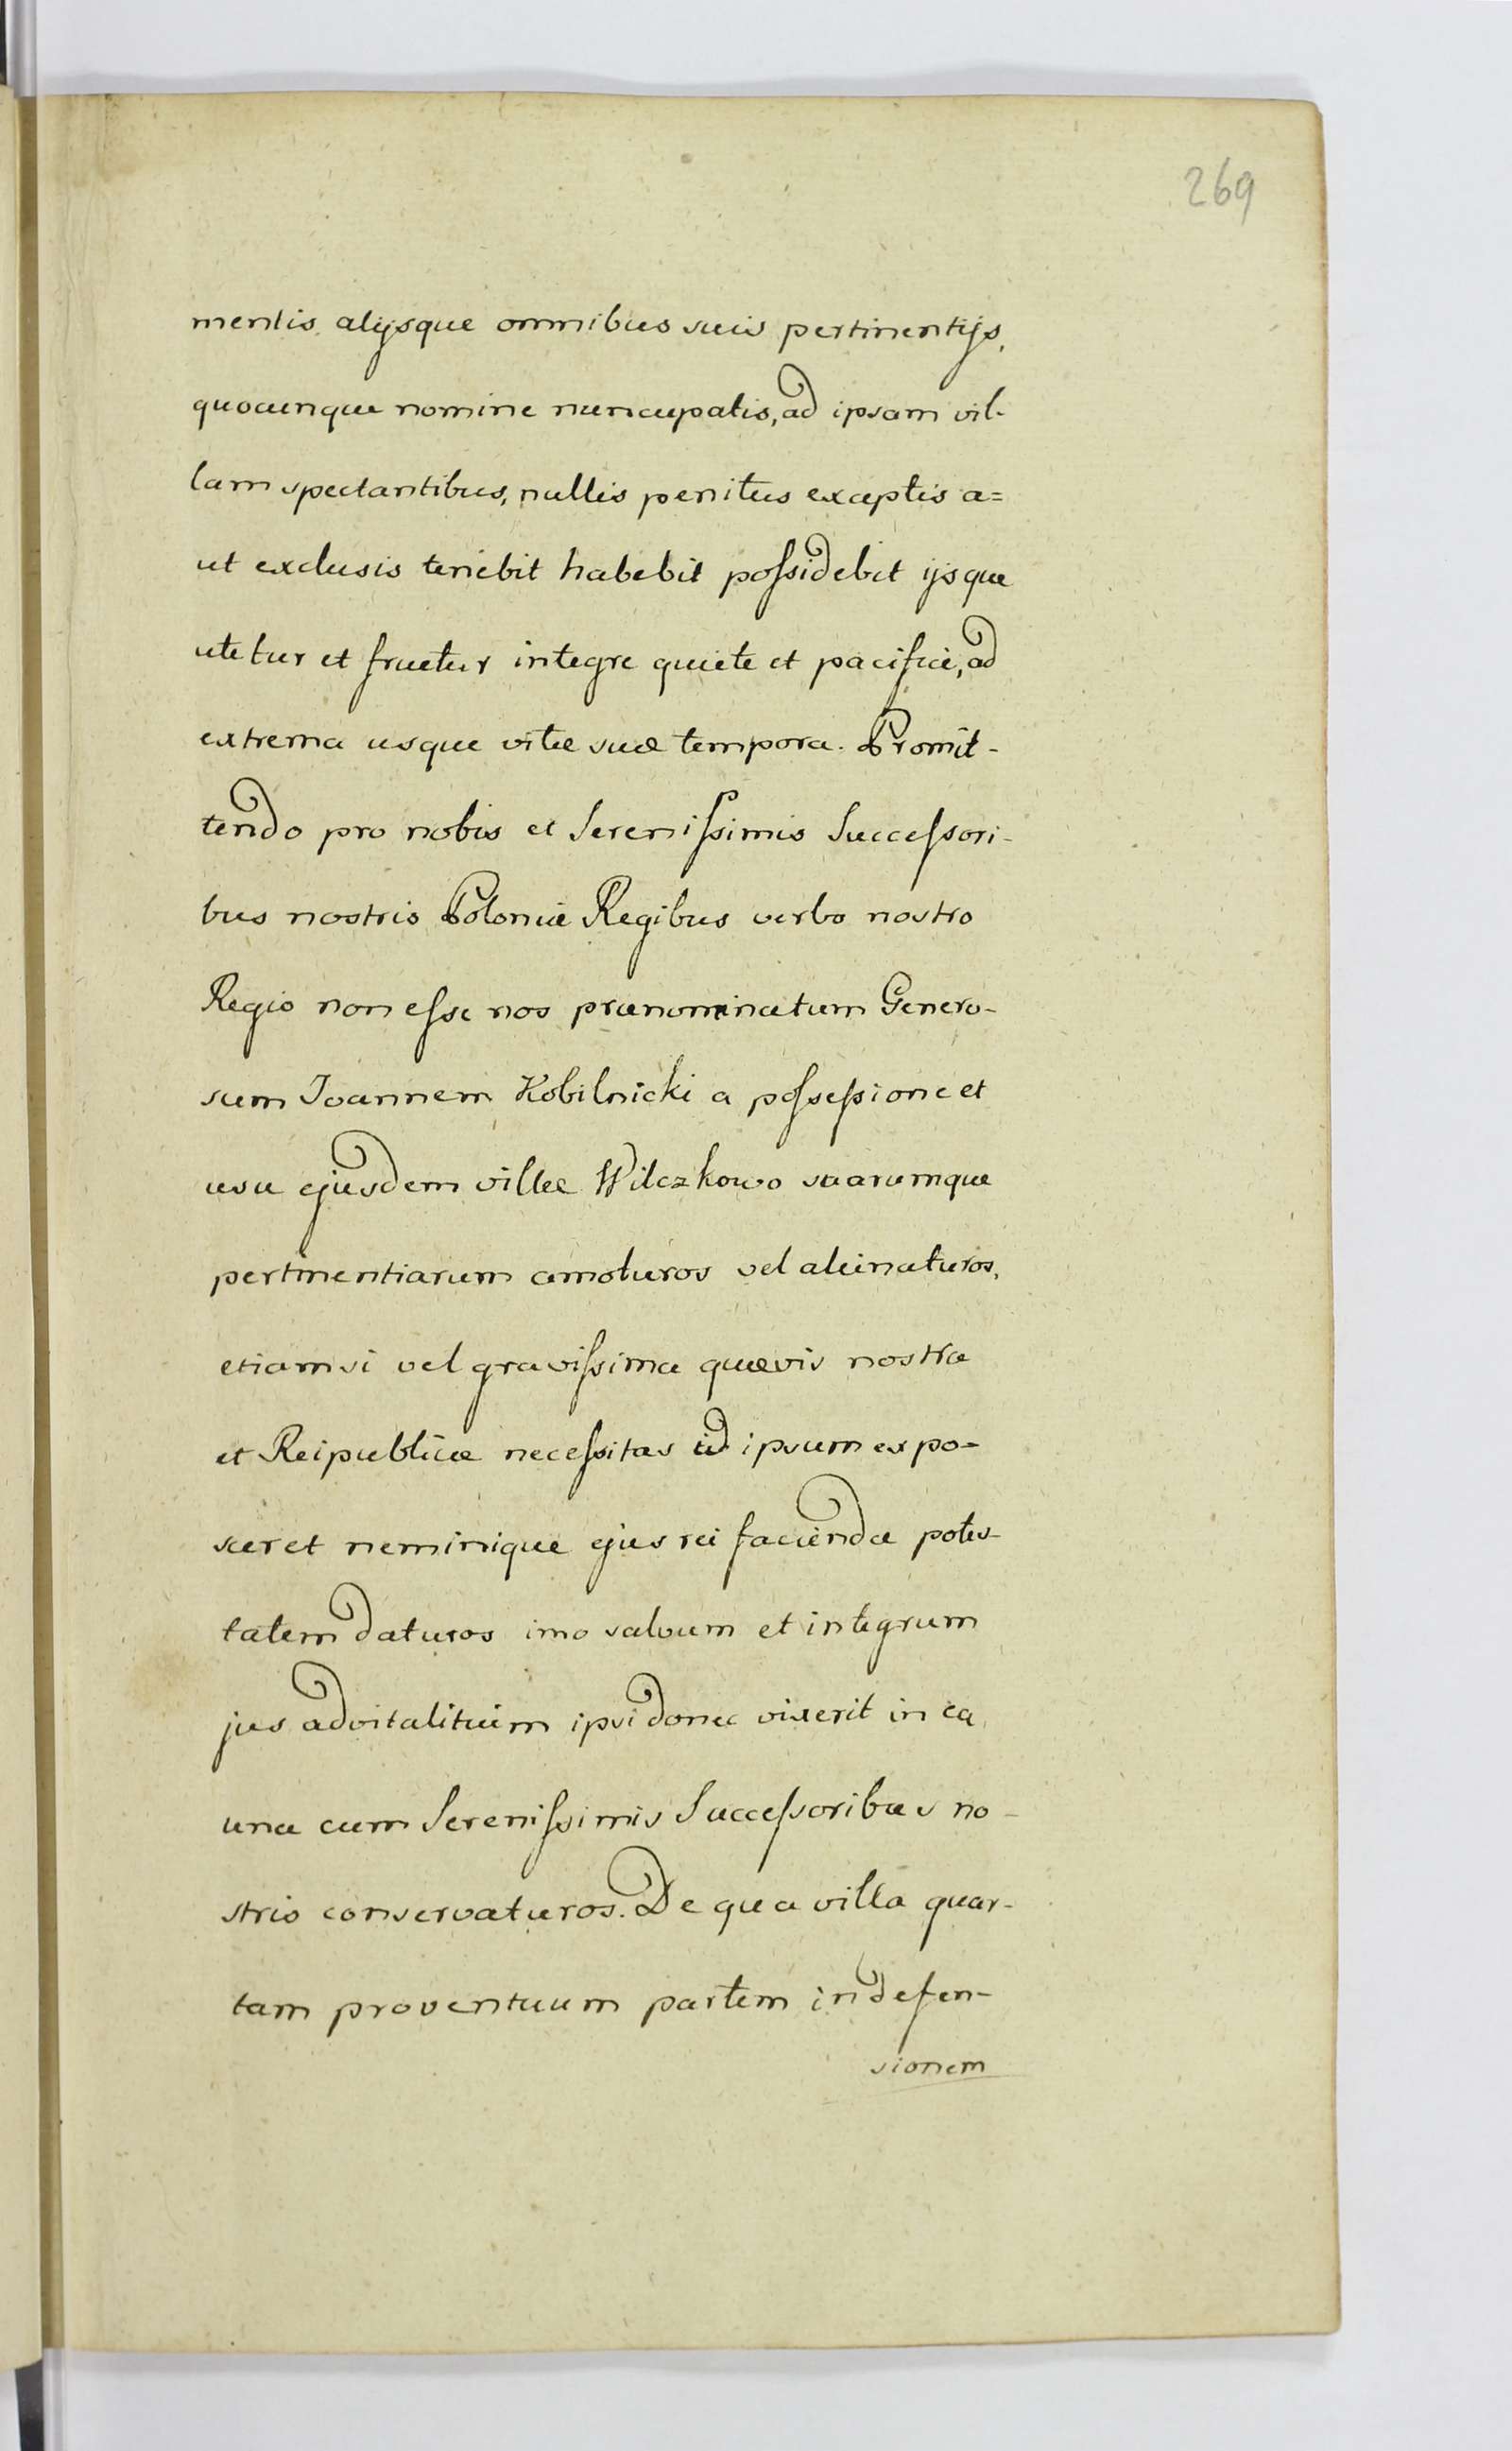 269
mentis alijsque omnibus suis pertinentijs,
quocunque nomine nuncupatis, ad ipsam vil-
lam spectantibus, nullis penitus exceptis a=
ut exclusis tenebit habebit possidebit ijsque
utetur et fruetur integre quiete et pacifice, ad
extrema usque vitæ suæ tempora. Promit-
tendo pro nobis et Serenissimis Successori-
bus nostris Poloniæ Regibus verbo nostro
Regio non esse nos prænominatum Genero-
sum Joannem Kobilnicki a possessione et
usu ejusdem villæ Wilczkowo suarumque
pertinentiarum amoturos vel alienaturos,
etiamsi vel gravissima quævis nostra
et Reipublicæ necessitas id ipsum expo-
sceret neminique ejus rei faciendæ potes-
tatem daturos imo salvum et integrum
jus advitalitium ipsi donec vixerit in ea,
una cum Serenissimis Successoribus no-
stris conservaturos. De qua villa quar-
tam proventuum partem in defen-
sionem